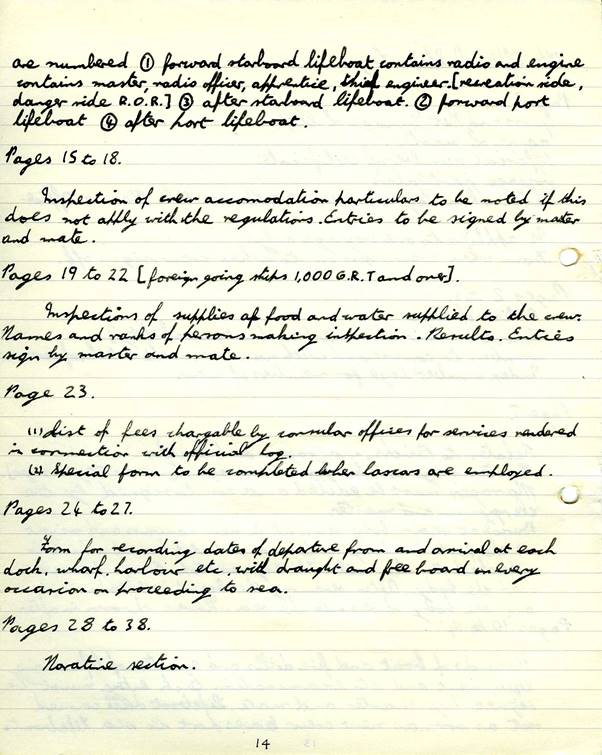 are numbered ① forward starboard lifeboat, contains radio and engine
contains master, radio officer, apprentice, third engineer. [recreation side,
danger side R.O.R.] ③ after starboard lifeboat. ② forward port
lifeboat ④ after port lifeboat.
Pages 15 to 18.
Inspection of crew accomodation particulars to be noted if this
does not apply with the regulations. Entries to be signed by master
and mate.
Pages 19 to 22 [foreign going ships 1,000 G.R.T and over].
Inspections of supplies of food and water supplied to the crew.
Names and ranks of persons making inspection. Results. Entries
sign by master and mate.
Page 23.
(1) List of fees chargable by consular offices for services rendered
in connection with official log.
(2) Special form to be completed when lascars are employed.
Pages 24 to 27.
Form for recording dates of departure from and arrival at each
dock, wharf, harbour etc. with draught and free board on every
occasion on proceeding to sea.
Pages 28 to 38.
Narative section.
14